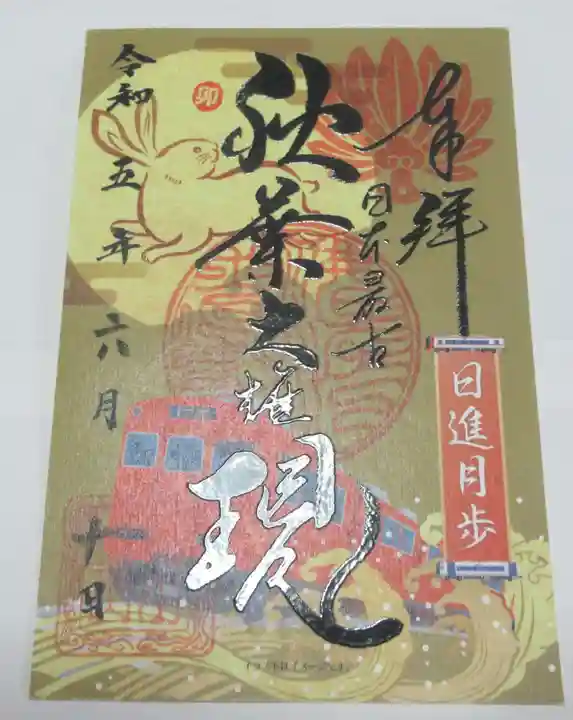 奉拝
日本最古
秋葉大権現
日進月歩
卯
令和五年
六月
十日